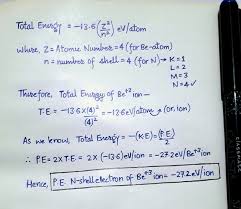 Total Energy = -13.6 (Z²/n²) eV/atom
where, Z = Atomic Number = 4 (for Be-atom)
n = number of shell = 4 (for N) → K=1
L=2
M=3
N=4✓
Therefore, Total Energy of Be⁺³ ion -
T.E = -13.6×(4)²/(4)² = -13.6 eV/atom (or, ion)
As we know, Total Energy = -(K.E) = (P.E/2)
∴ P.E = 2×T.E = 2×(-13.6) eV/ion = -27.2 eV/Be⁺³ ion
Hence, P.E. N-shell electron of Be⁺³ ion = -27.2 eV/ion
CLASSMATE